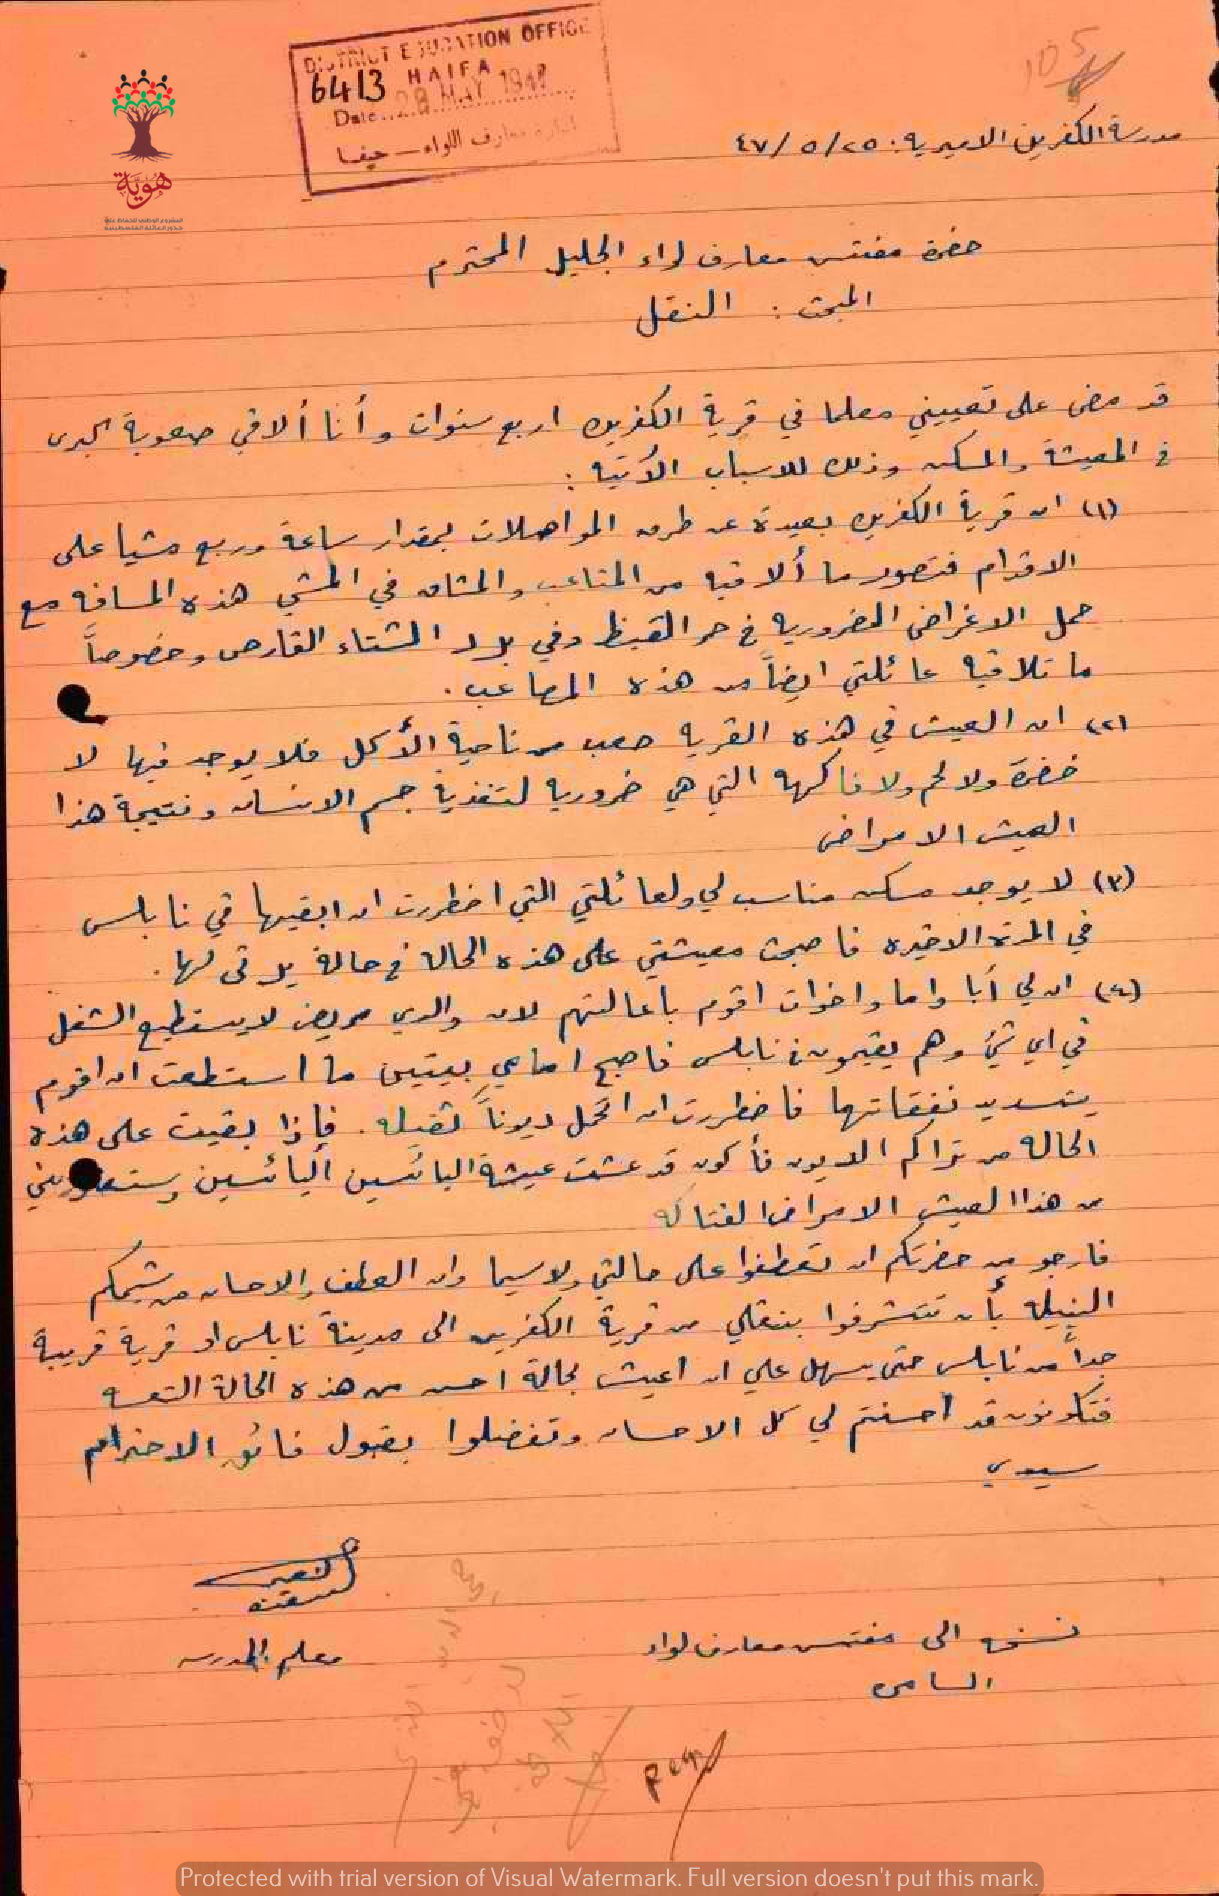 DISTRICT EDUCATION OFFICE
HAIFA
6413
Date 28 MAY 1947
ادارة معارف اللواء – حيفا
105
هُوِيَّة
المشروع الوطني للحفاظ على
جذور العائلة الفلسطينية
مدرسة الكفرين الاميرية: ٢٥/٥/٤٧
حضرة مفتش معارف لواء الجليل المحترم
المبحث : النقل
قد مضى على تعييني معلما في قرية الكفرين اربع سنوات وأنا ألاقي صعوبة كبرى
في المعيشة والمسكن وذلك للاسباب الآتية :
(١) ان قرية الكفرين بعيدة عن طرق المواصلات بمقدار ساعة وربع مشيا على
الاقدام فتصور ما ألاقيه من المتاعب والمشاق في المشي هذه المسافه مع
حمل الاغراض الضرورية في حر القيظ وفي برد الشتاء القارص وخصوصاً
ما تلاقيه عائلتي ايضاً من هذه المصاعب .
(٢) ان العيش في هذه القريه صعب من ناحية الأكل فلا يوجد فيها لا
خضرة ولا لحم ولا فاكهه التي هي ضروريه لتغذية جسم الانسان ونتيجة هذا
العيش الامراض
(٣) لا يوجد مسكن مناسب لي ولعائلتي التي اضطررت ان ابقيها في نابلس
في المدة الاخيره فاصبحت معيشتي على هذه الحالة في حالة يرثى لها .
(٤) ان لي أبا واما واخوات اقوم باعالتهم لان والدي مريض لا يستطيع الشغل
في اي شيء وهم يقيمون في نابلس فاصبح امامي بيتين ما استطعت ان اقوم
بتسديد نفقاتها فاضطررت ان اتحمل ديوناً ثقيله . فإذا بقيت على هذه
الحاله من تراكم الديون فأكون قد عشت عيشة البائسين اليائسين
من هذا العيش الامراض الفتاكه
فارجو من حضرتكم ان تعطفوا على حالتي ولا سيما وان العطف والاحسان من شيمكم
النبيله بأن تتشرفوا بنقلي من قرية الكفرين الى مدينة نابلس او قرية قريبة
جداً من نابلس حتى يسهل علي ان اعيش بحالة احسن من هذه الحالة التعسه
فتكونون قد احسنتم لي كل الاحسان وتفضلوا بقبول فائق الاحترام
سيدي
معلم المدرسه
نسخه الى مفتش معارف لواء
السامره
Protected with trial version of Visual Watermark. Full version doesn't put this mark.